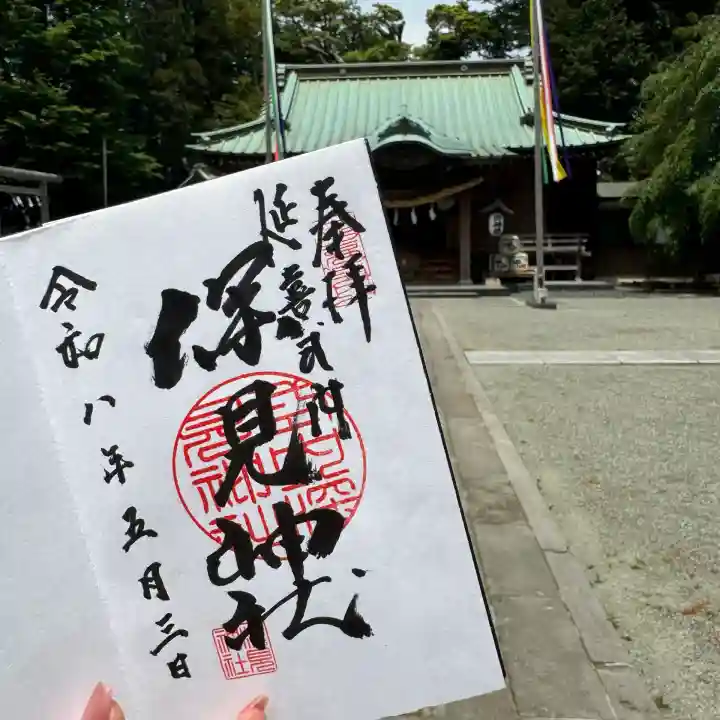 奉拝
延喜式内
深見神社
令和八年五月三日